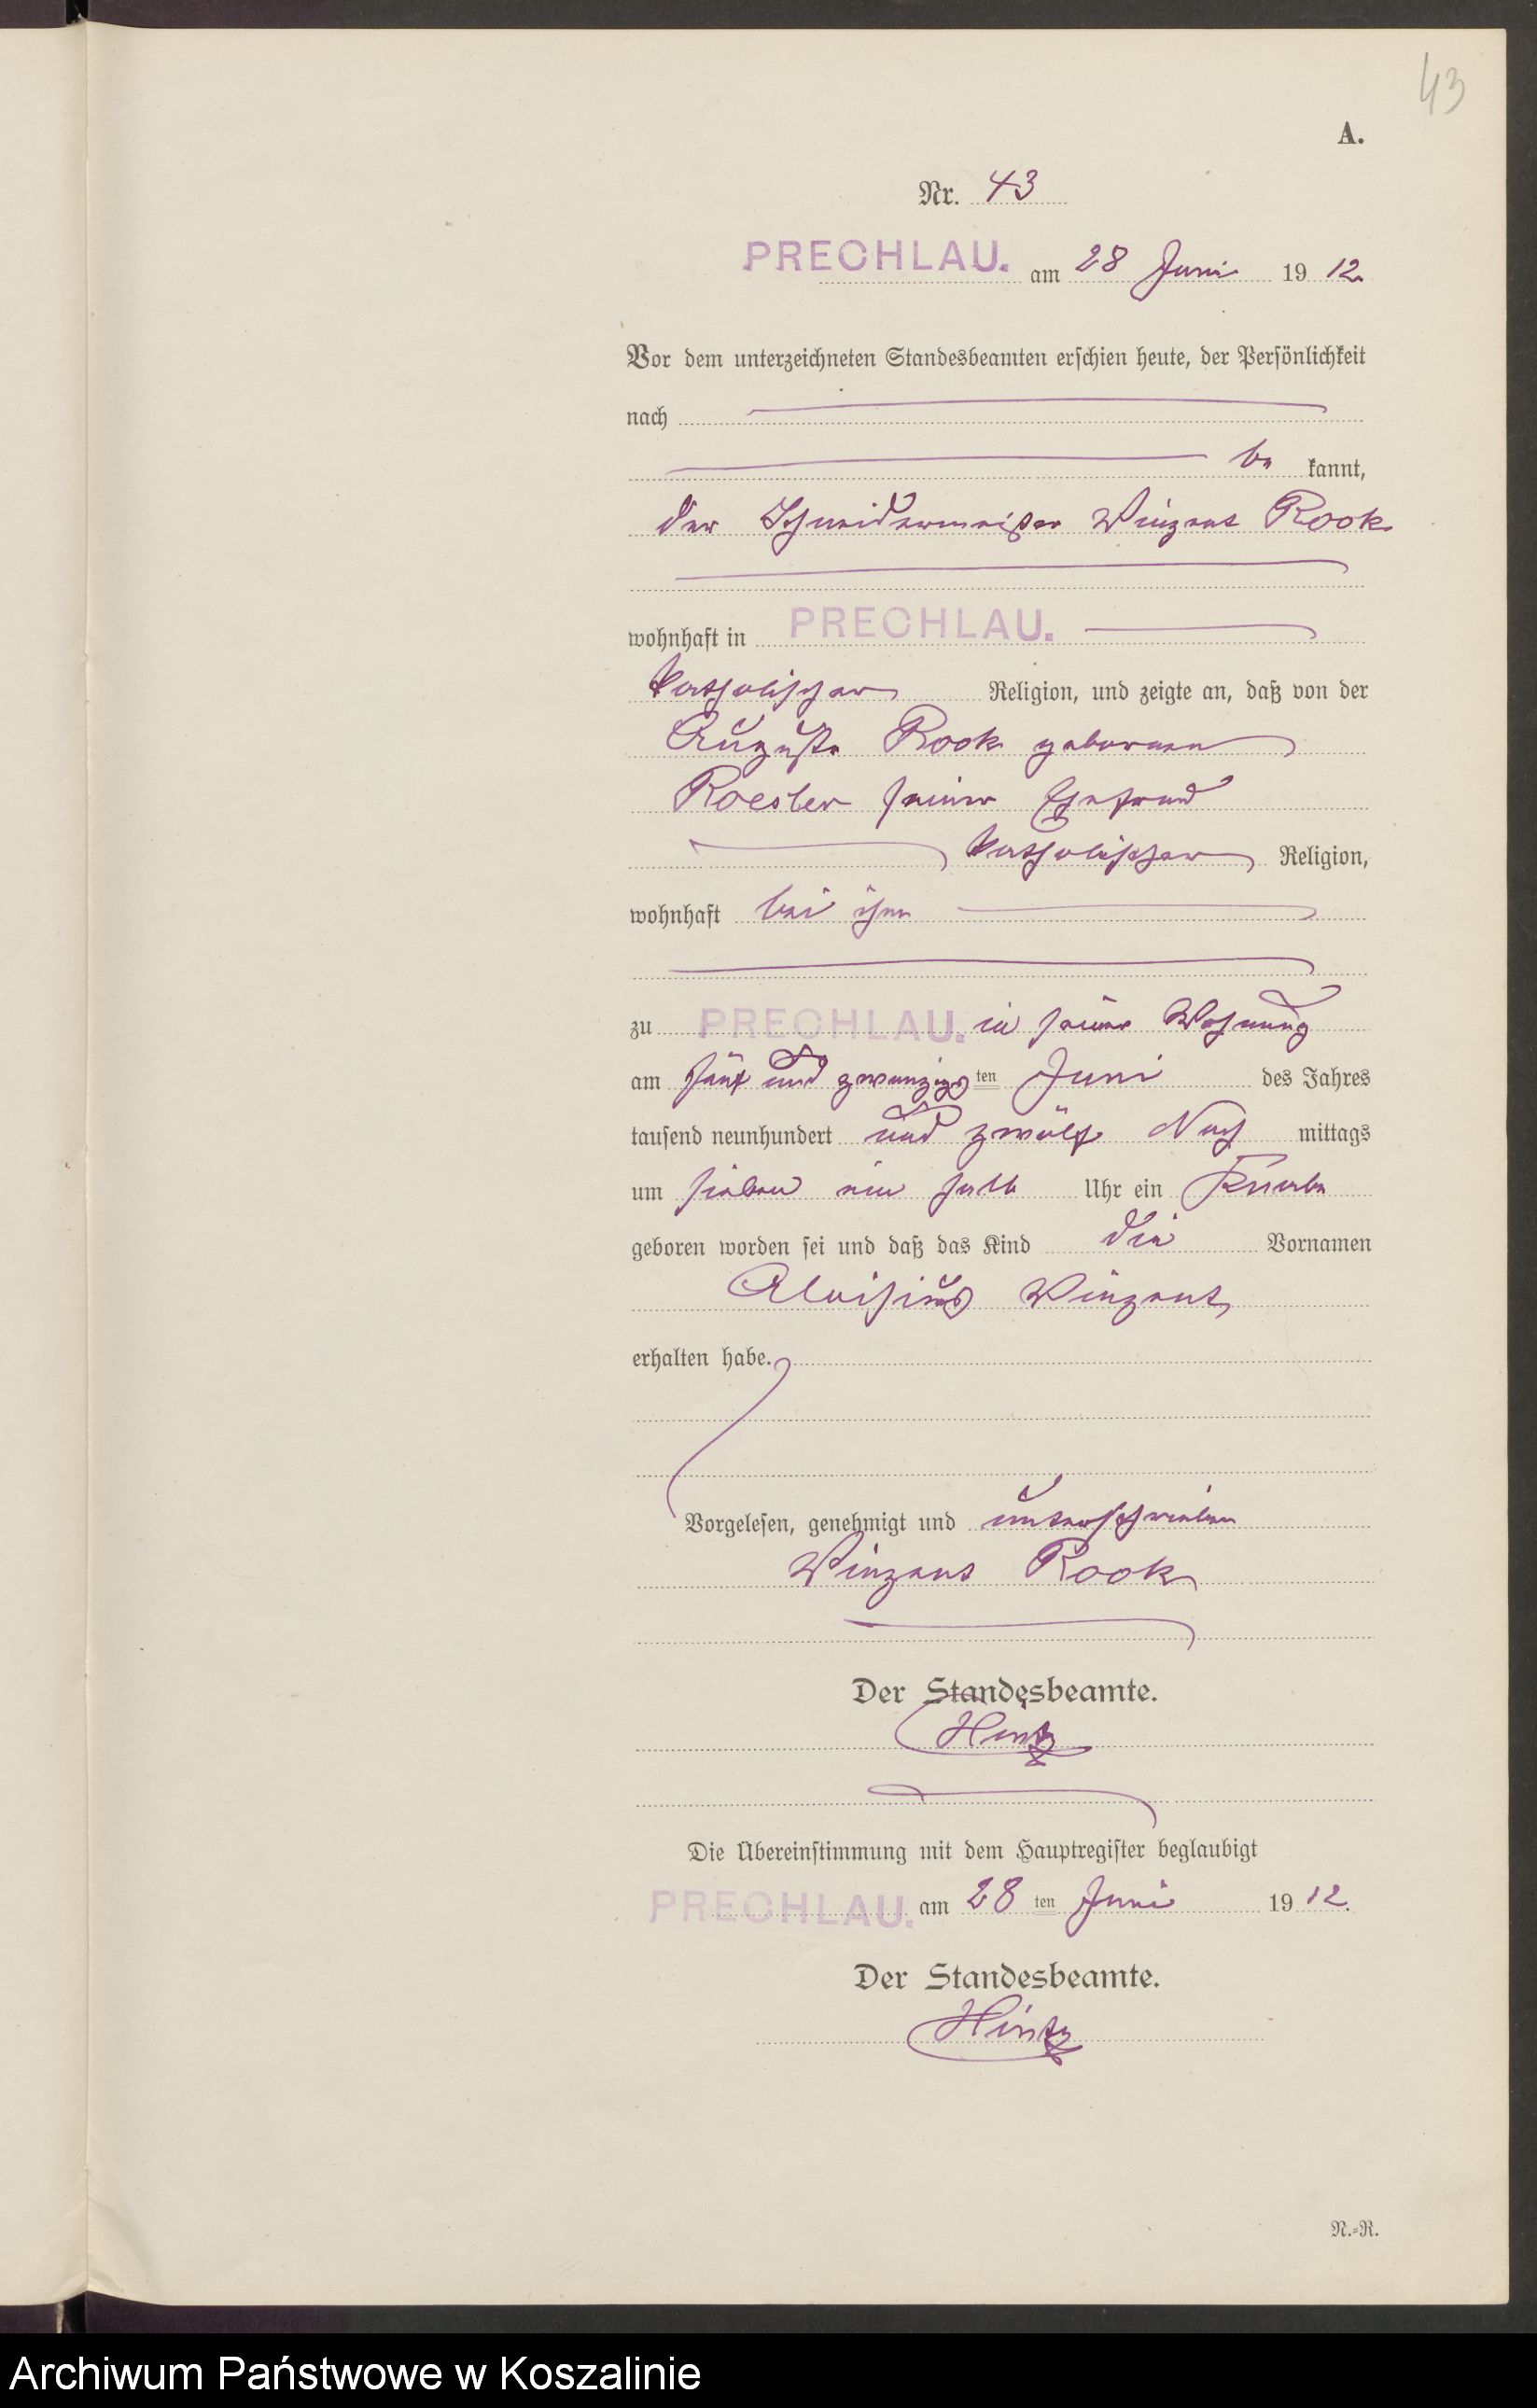 43
A.
Nr. 43
PRECHLAU. am 28 Juni 19 12
Vor dem unterzeichneten Standesbeamten erschien heute, der Persönlichkeit
nach
be kannt,
der Schneidermeister Winzent Rook
wohnhaft in PRECHLAU.
katholischer Religion, und zeigte an, daß von der
Auguste Rook geborenen
Roesler seiner Ehefrau
katholischer Religion,
wohnhaft bei ihm
zu PRECHLAU. in seiner Wohnung
am fünf und zwanzigs ten Juni des Jahres
tausend neunhundert und zwölf Nach mittags
um sieben ein halb Uhr ein Knabe
geboren worden sei und daß das Kind die Vornamen
Aloisius Winzent
erhalten habe.
Vorgelesen, genehmigt und unterschrieben
Winzent Rook
Der Standesbeamte.
Hintz
Die Übereinstimmung mit dem Hauptregister beglaubigt
PRECHLAU. am 28 ten Juni 19 12.
Der Standesbeamte.
Hintz
N.-R.
Archiwum Państwowe w Koszalinie